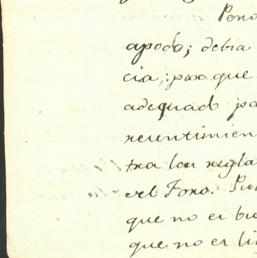 Pero
apodo; debia
cia; pór que
adequad pa
recentimien
tra las regla
el Foro.
que no es bu
que no es li